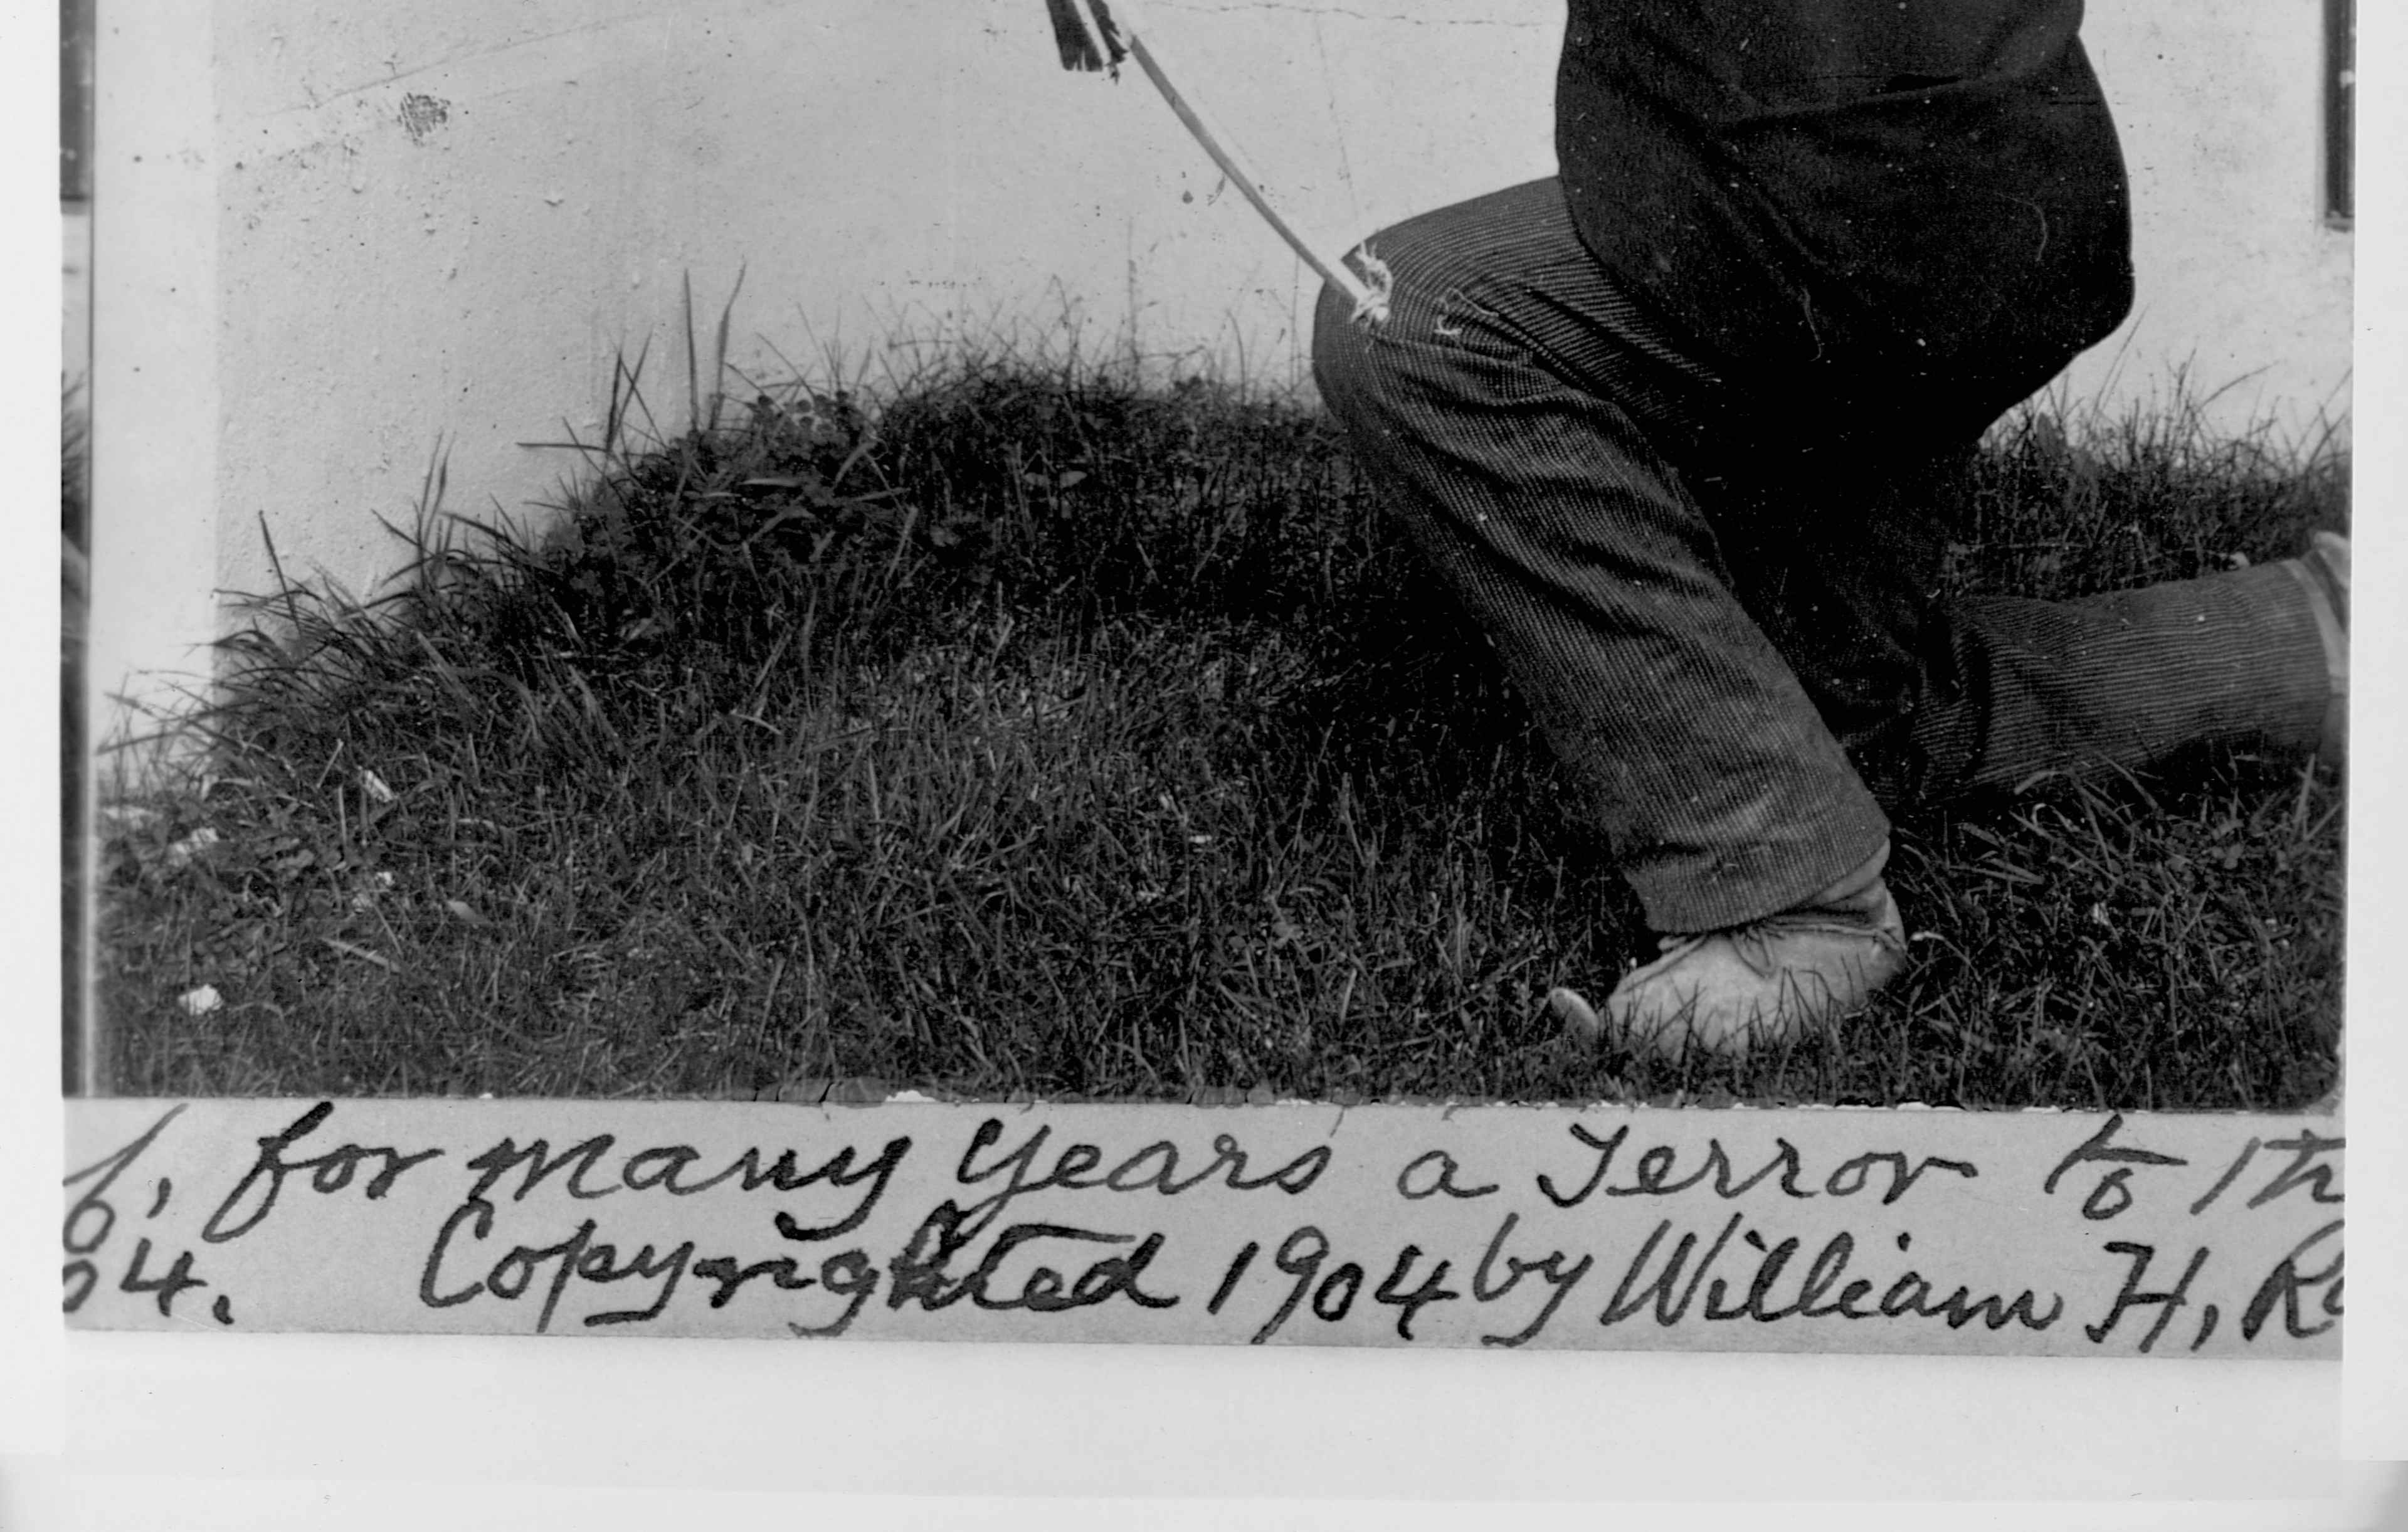 for many Years a Terror to
04. Copyrighted 1904 by William H.